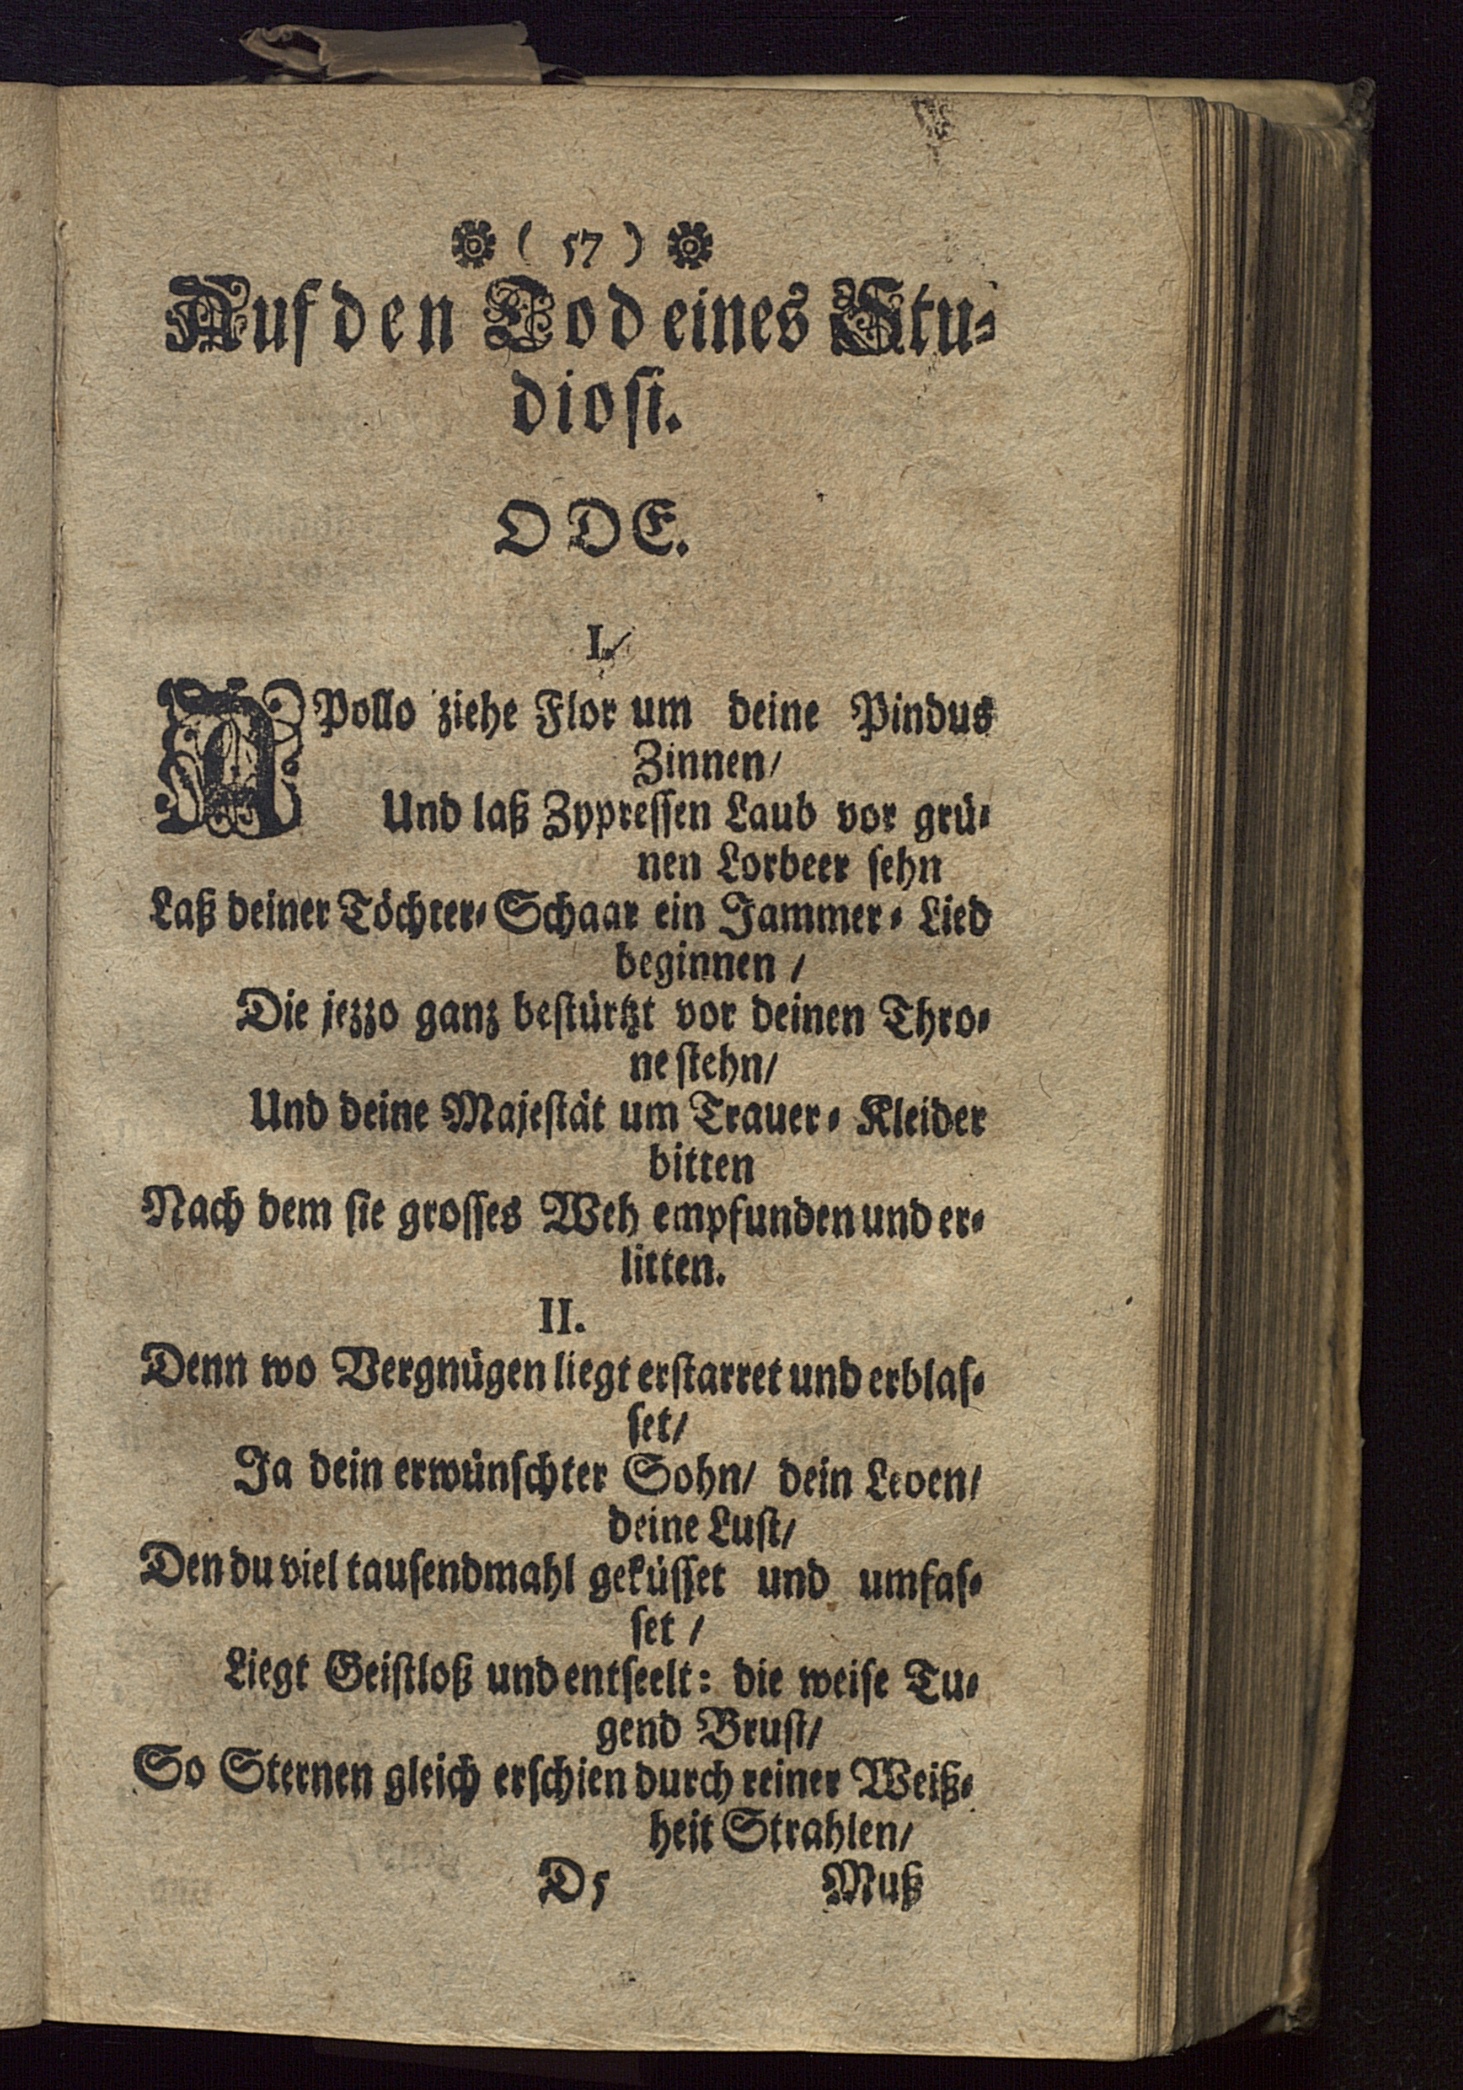 ( 57 )
Auf den Tod eines Stu-
diosi.
ODE.
I.
APollo ziehe Flor um deine Pindus
Zinnen/
Und laß Zypressen Laub vor grü-
nen Lorbeer sehn
Laß deiner Töchter-Schaar ein Jammer-Lied
beginnen /
Die jezzo ganz bestürtzt vor deinen Thro-
ne stehn/
Und deine Majestät um Trauer-Kleider
bitten
Nach dem sie grosses Weh empfunden und er-
litten.
II.
Denn wo Vergnügen liegt erstarret und erblas-
set/
Ja dein erwünschter Sohn/ dein Leben/
deine Lust/
Den du viel tausendmahl geküsset und umfas-
set /
Liegt Geistloß und entseelt: die weise Tu-
gend Brust/
So Sternen gleich erschien durch reiner Weiß-
heit Strahlen/
D5 Muß